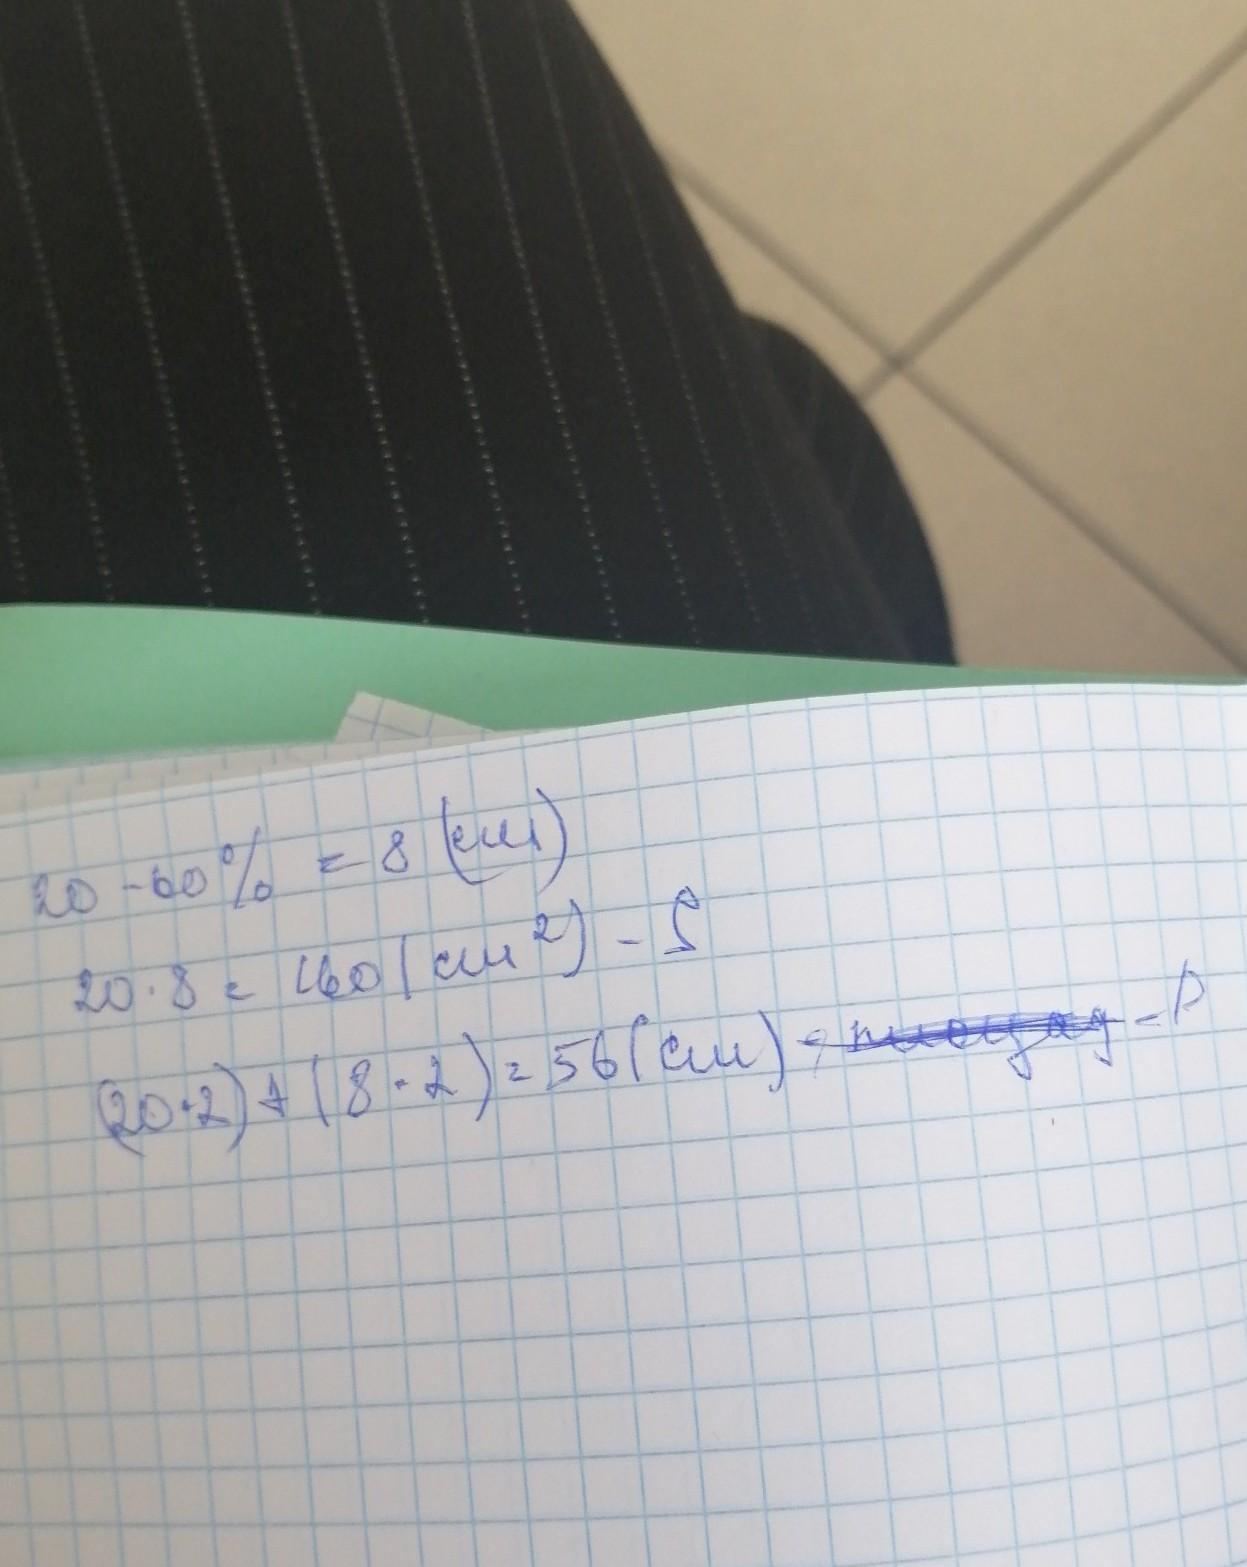 20 - 60% = 8 (см)
20 · 8 = 160 (см²) - S
(20·2) + (8·2) = 56 (см) - P